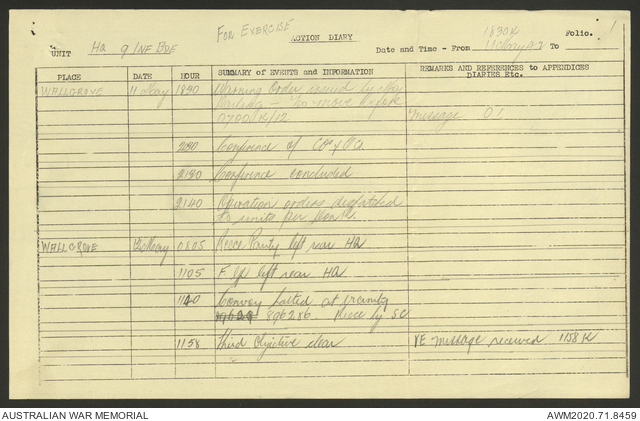 FOR EXERCISE
ACTION DIARY
1830K
Folio. 1
UNIT HQ 9 INF BDE
Date and Time - From 11 May 42 To
PLACE DATE HOUR SUMMARY of EVENTS and INFORMATION REMARKS AND REFERENCES to APPENDICES
DIARIES Etc.
WALLGROVE 11 May 1830 Warning Order issued by
to move before
0700K/12 Message 01
Conference of
2130 Conference concluded
2140 Operation orders despatched
to units per
WALLGROVE 12 May Recce Party left rear HQ
1105 F left rear HQ
1140 Convoy halted at vicinity
896286 Recce by SC
1158 Third Objective clear RE message received 1158 K
AUSTRALIAN WAR MEMORIAL
AWM2020.71.8459